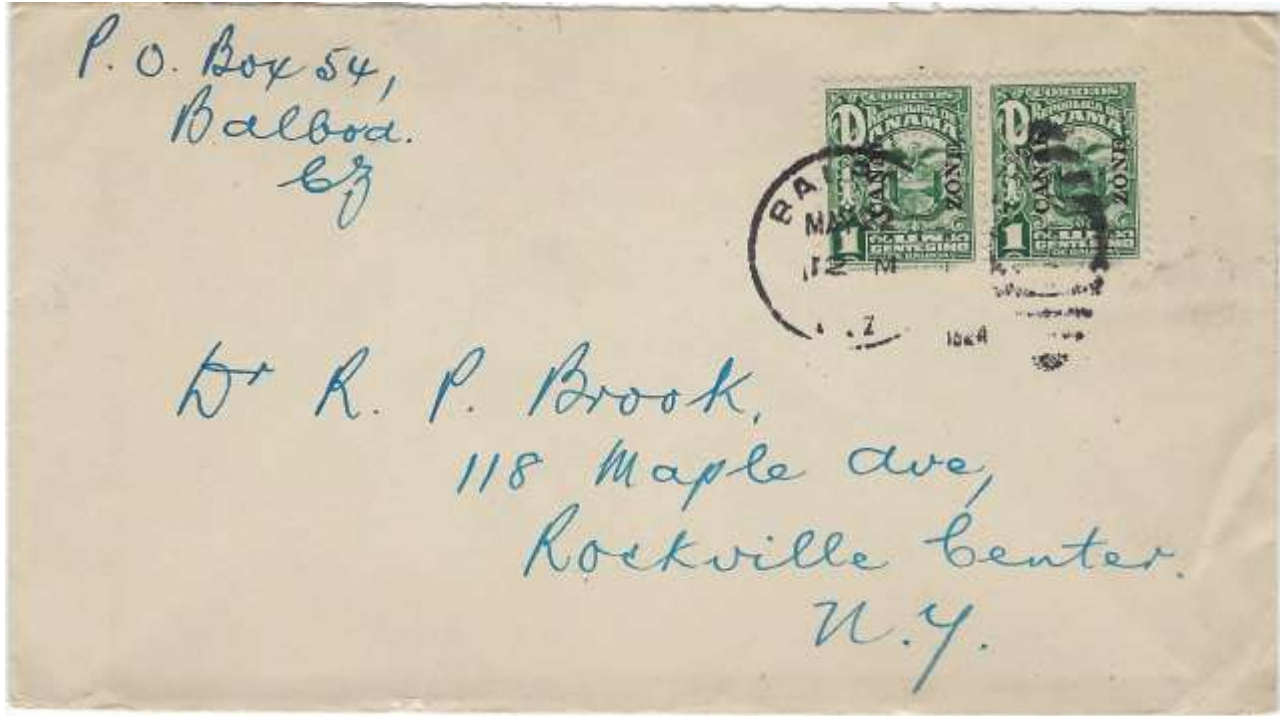 P. O. Box 54,
Balboa.
CZ
CORREOS
REPUBLICA DE
PANAMA
CANAL ZONE
1 UN 
CENTESIMO
CORREOS
REPUBLICA DE
PANAMA
CANAL ZONE
1 UN
CENTESIMO
BALB
MAY 22
12 M
Z
1924
Dr R. P. Brook,
118 Maple Ave,
Rockville Center.
N.Y.